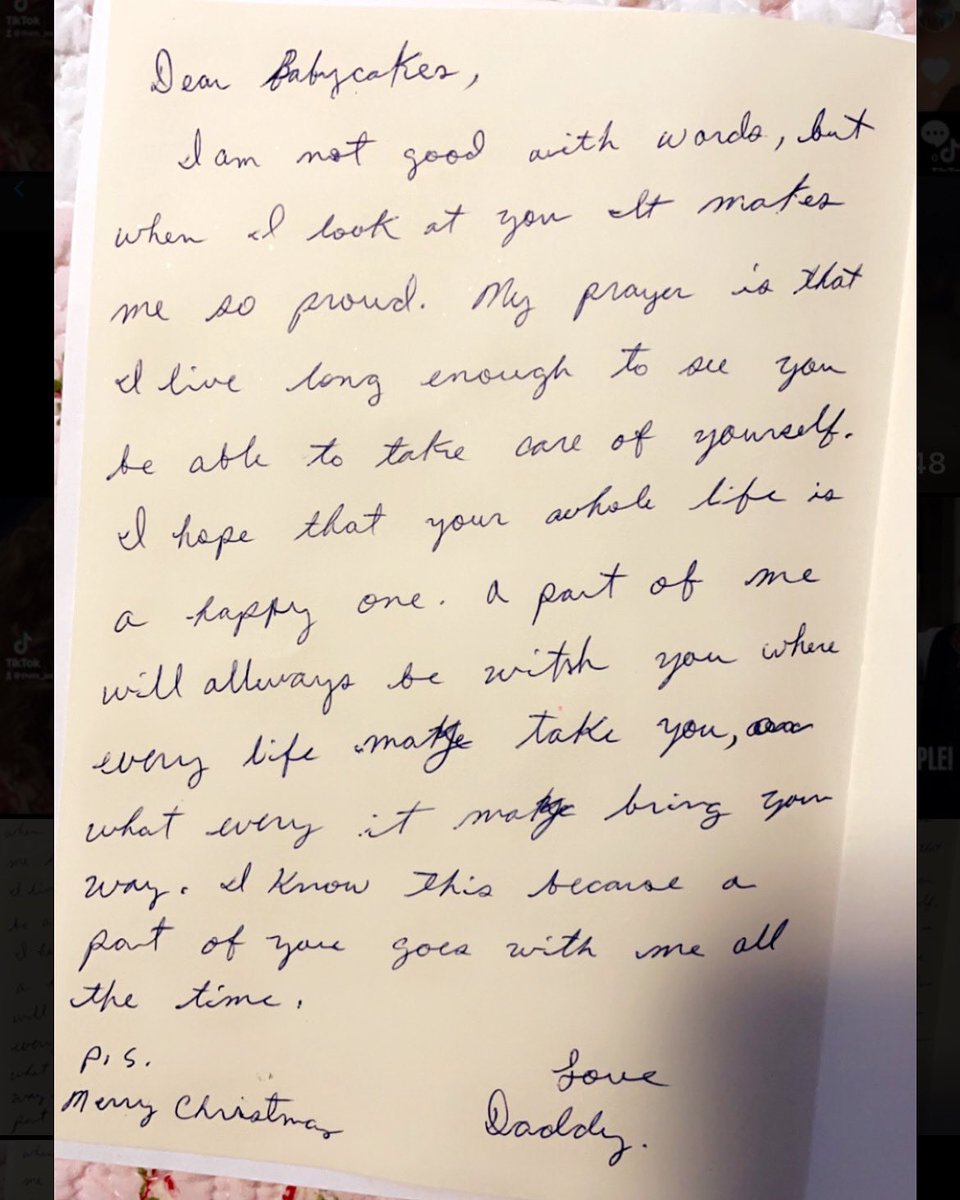 Dear Babycakes,
I am not good with words, but
when I look at you It makes
me so proud. My prayer is that
I live long enough to see you
be able to take care of yourself.
I hope that your whole life is
a happy one. A part of me
will allways be witsh you where
every life may take you,
what every it may bring your
way. I know this because a
part of you goes with me all
the time.
P.S.
Merry Christmas
Love
Daddy.
TikTok
TikTok
48
PLEI